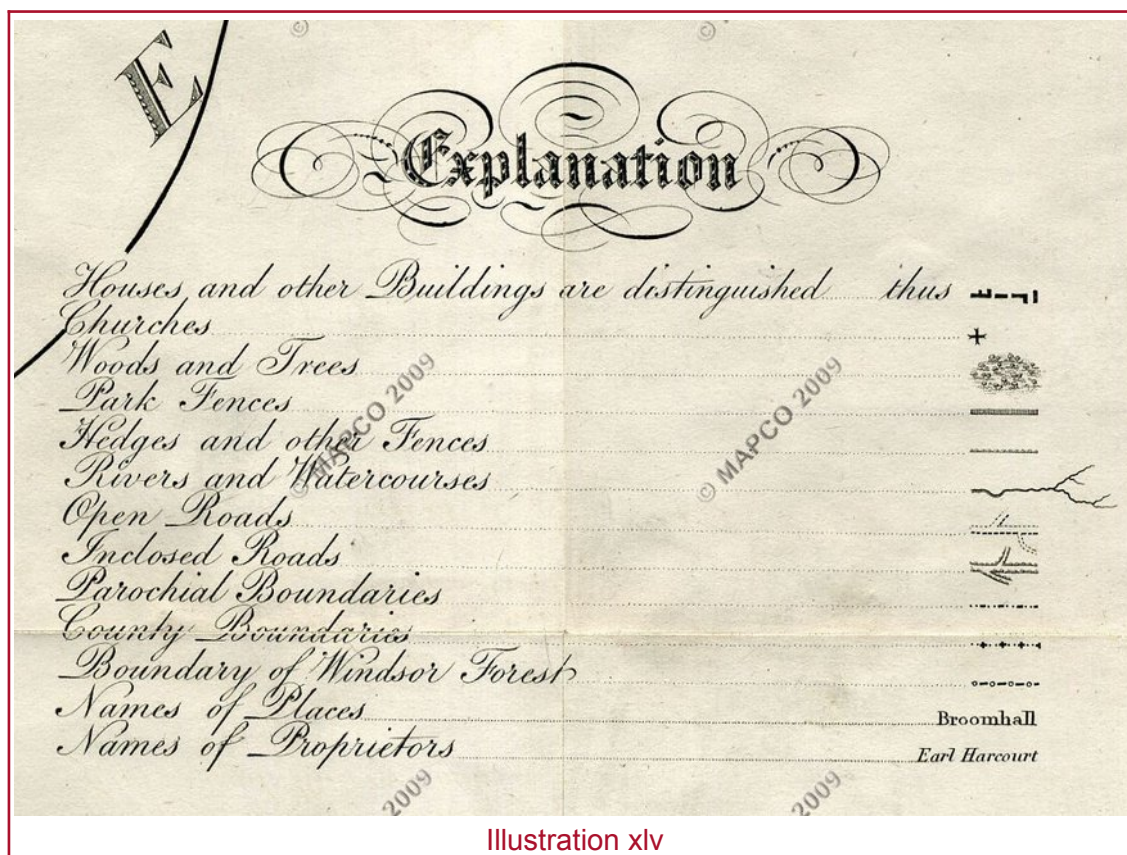 ©
©
E
Explanation
Houses and other Buildings are distinguished thus
Churches
Woods and Trees
Park Fences
Hedges and other Fences
Rivers and Watercourses
Open Roads
Inclosed Roads
Parochial Boundaries
County Boundaries
Boundary of Windsor Forest
Names of Places Broomhall
Names of Proprietors Earl Harcourt
© MAPCO 2009
© MAPCO 2009
2009
2009
Illustration xlv